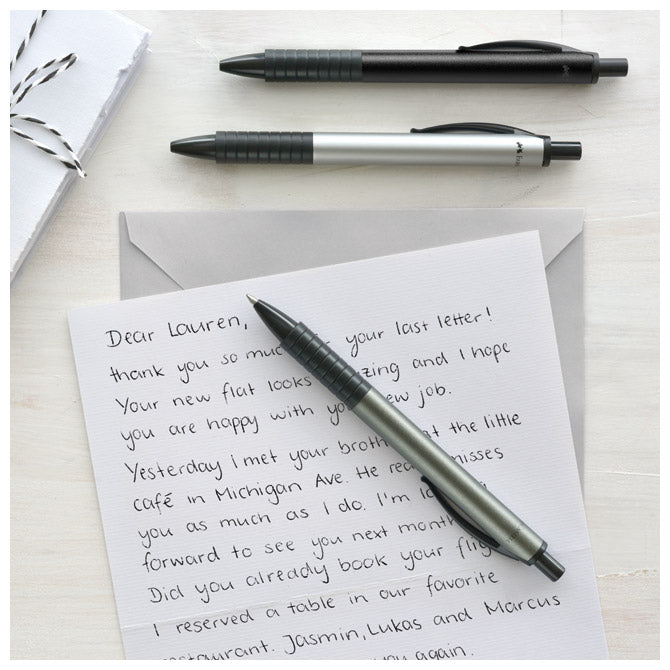 Dear Lauren,
thank you so your last letter!
Your new flat looks and I hope
you are happy with job.
Yesterday i met your at the little
café in Michigan Ave. He misses
you as much as I do. I'm
forward to see you next
Did you already book your
I reserved a table in our favorite
Jasmin, Lukas and Marcus
you again.